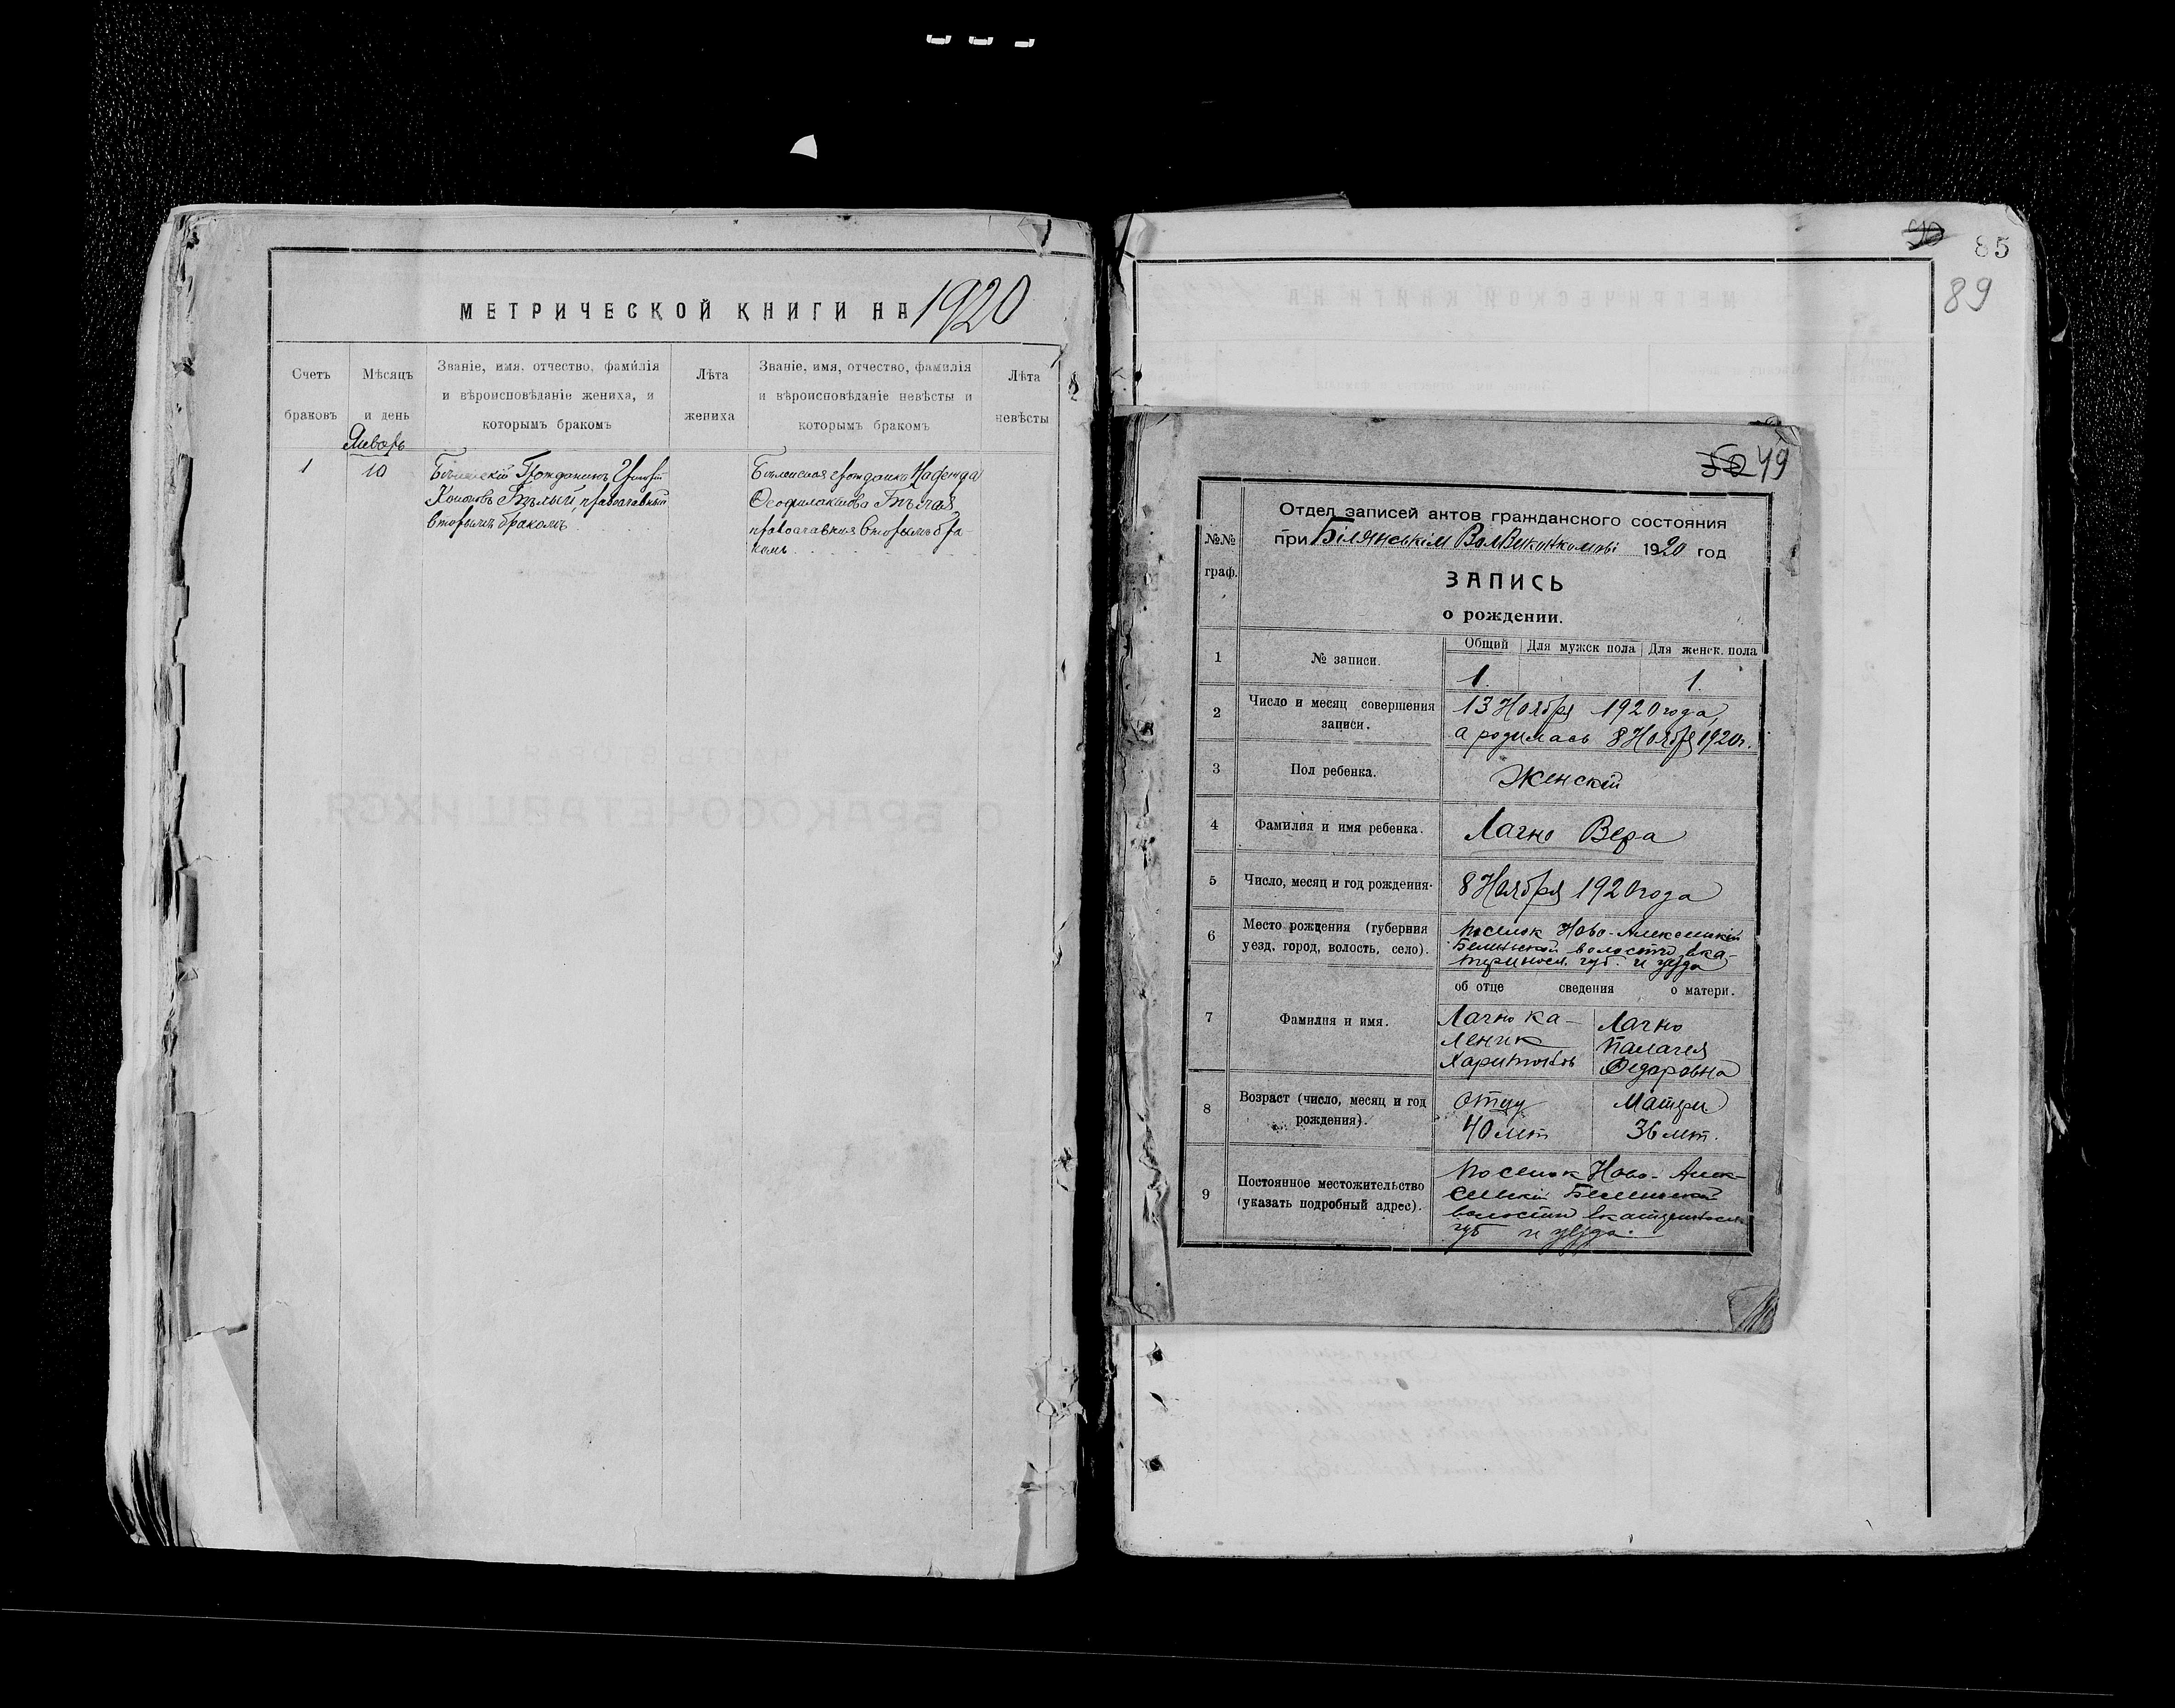 МЕТРИЧЕСКОЙ КНИГИ НА 1920
Счетъ браковъ
Мѣсяцъ и день
Званіе, имя, отчество, фамилія
и вѣроисповѣданіе жениха, и
которымъ бракомъ
Лѣта жениха
Званіе, имя, отчество, фамилія
и вѣроисповѣданіе невѣсты и
которымъ бракомъ
Лѣта невѣсты
Январь
1
10
Гражданинъ
Бѣлый, православный
вторымъ бракомъ
гражданка Надежда
Феофилактова Бѣлая,
православная вторымъ бра
комъ
85
89
49
Отдел записей актов гражданского состояния
при Білянськім Волвиконкомові 1920 год
№№
граф.
ЗАПИСЬ
о рождении.
1
№ записи.
Общий Для мужск пола Для женск. пола
1. 1.
2
Число и месяц совершения
записи.
13 Ноября 1920 года,
а родилась 8 Ноября 1920 г.
3
Пол ребенка.
Женскій
4
Фамилия и имя ребенка.
Лагно Вера
5
Число, месяц и год рождения.
8 Ноября 1920 года
6
Место рождения (губерния
уезд, город, волость, село).
поселок Ново-
волости Ека-
теринослв. губ. и уезда
об отце сведения о матери.
7
Фамилия и имя.
Лагно Ка-
леник
Харитонов
Лагно
Палагея
Федаровна
8
Возраст (число, месяц и год
рождения).
отцу
40 лет
Матери
36 лет.
9
Постоянное местожительство
(указать подробный адрес).
поселок Ново-
волости
губ и уезда.